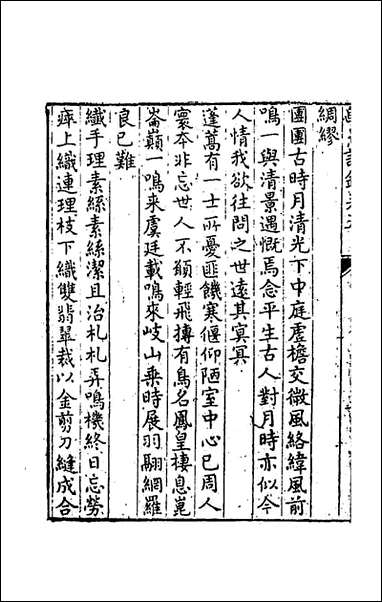 綢繆
團團古時月清光下中庭虛檐交微風絡緯風前
鳴一與清景遇慨焉念平生古人對月時亦似今
人情我欲往問之世遠其冥冥
蓬蒿有一士所憂匪饑寒偃仰陋室中心已周人
寰夲非忘世人不願輕飛摶有鳥名鳳皇棲息崑
崙巔一鳴來虞廷載鳴來岐山乘時展羽翮網羅
良已難
纖手理素絲素絲潔且治札札弄鳴機終日忘勞
瘁上織連理枝下織雙翡翠裁以金剪刀縫成合